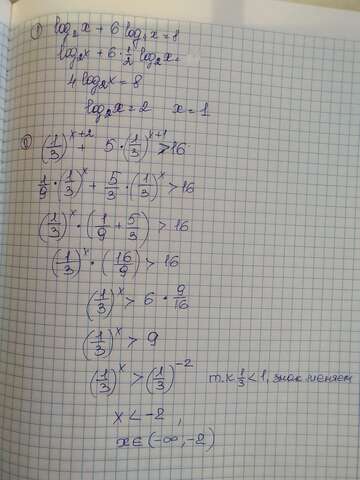 1) log₂x + 6 log₄x = 8
log₂x + 6 · 1/2 log₂x =
4 log₂x = 8
log₂x = 2 x = 1
2) (1/3)^(x+2) + 5 · (1/3)^(x+1) > 16
1/9 · (1/3)^x + 5/3 · (1/3)^x > 16
(1/3)^x · (1/9 + 5/3) > 16
(1/3)^x · (16/9) > 16
(1/3)^x > 6 · 9/16
(1/3)^x > 9
(1/3)^x > (1/3)^(-2) т.к 1/3 < 1, знак меняем
x < -2 ,
x ∈ (-∞, -2)